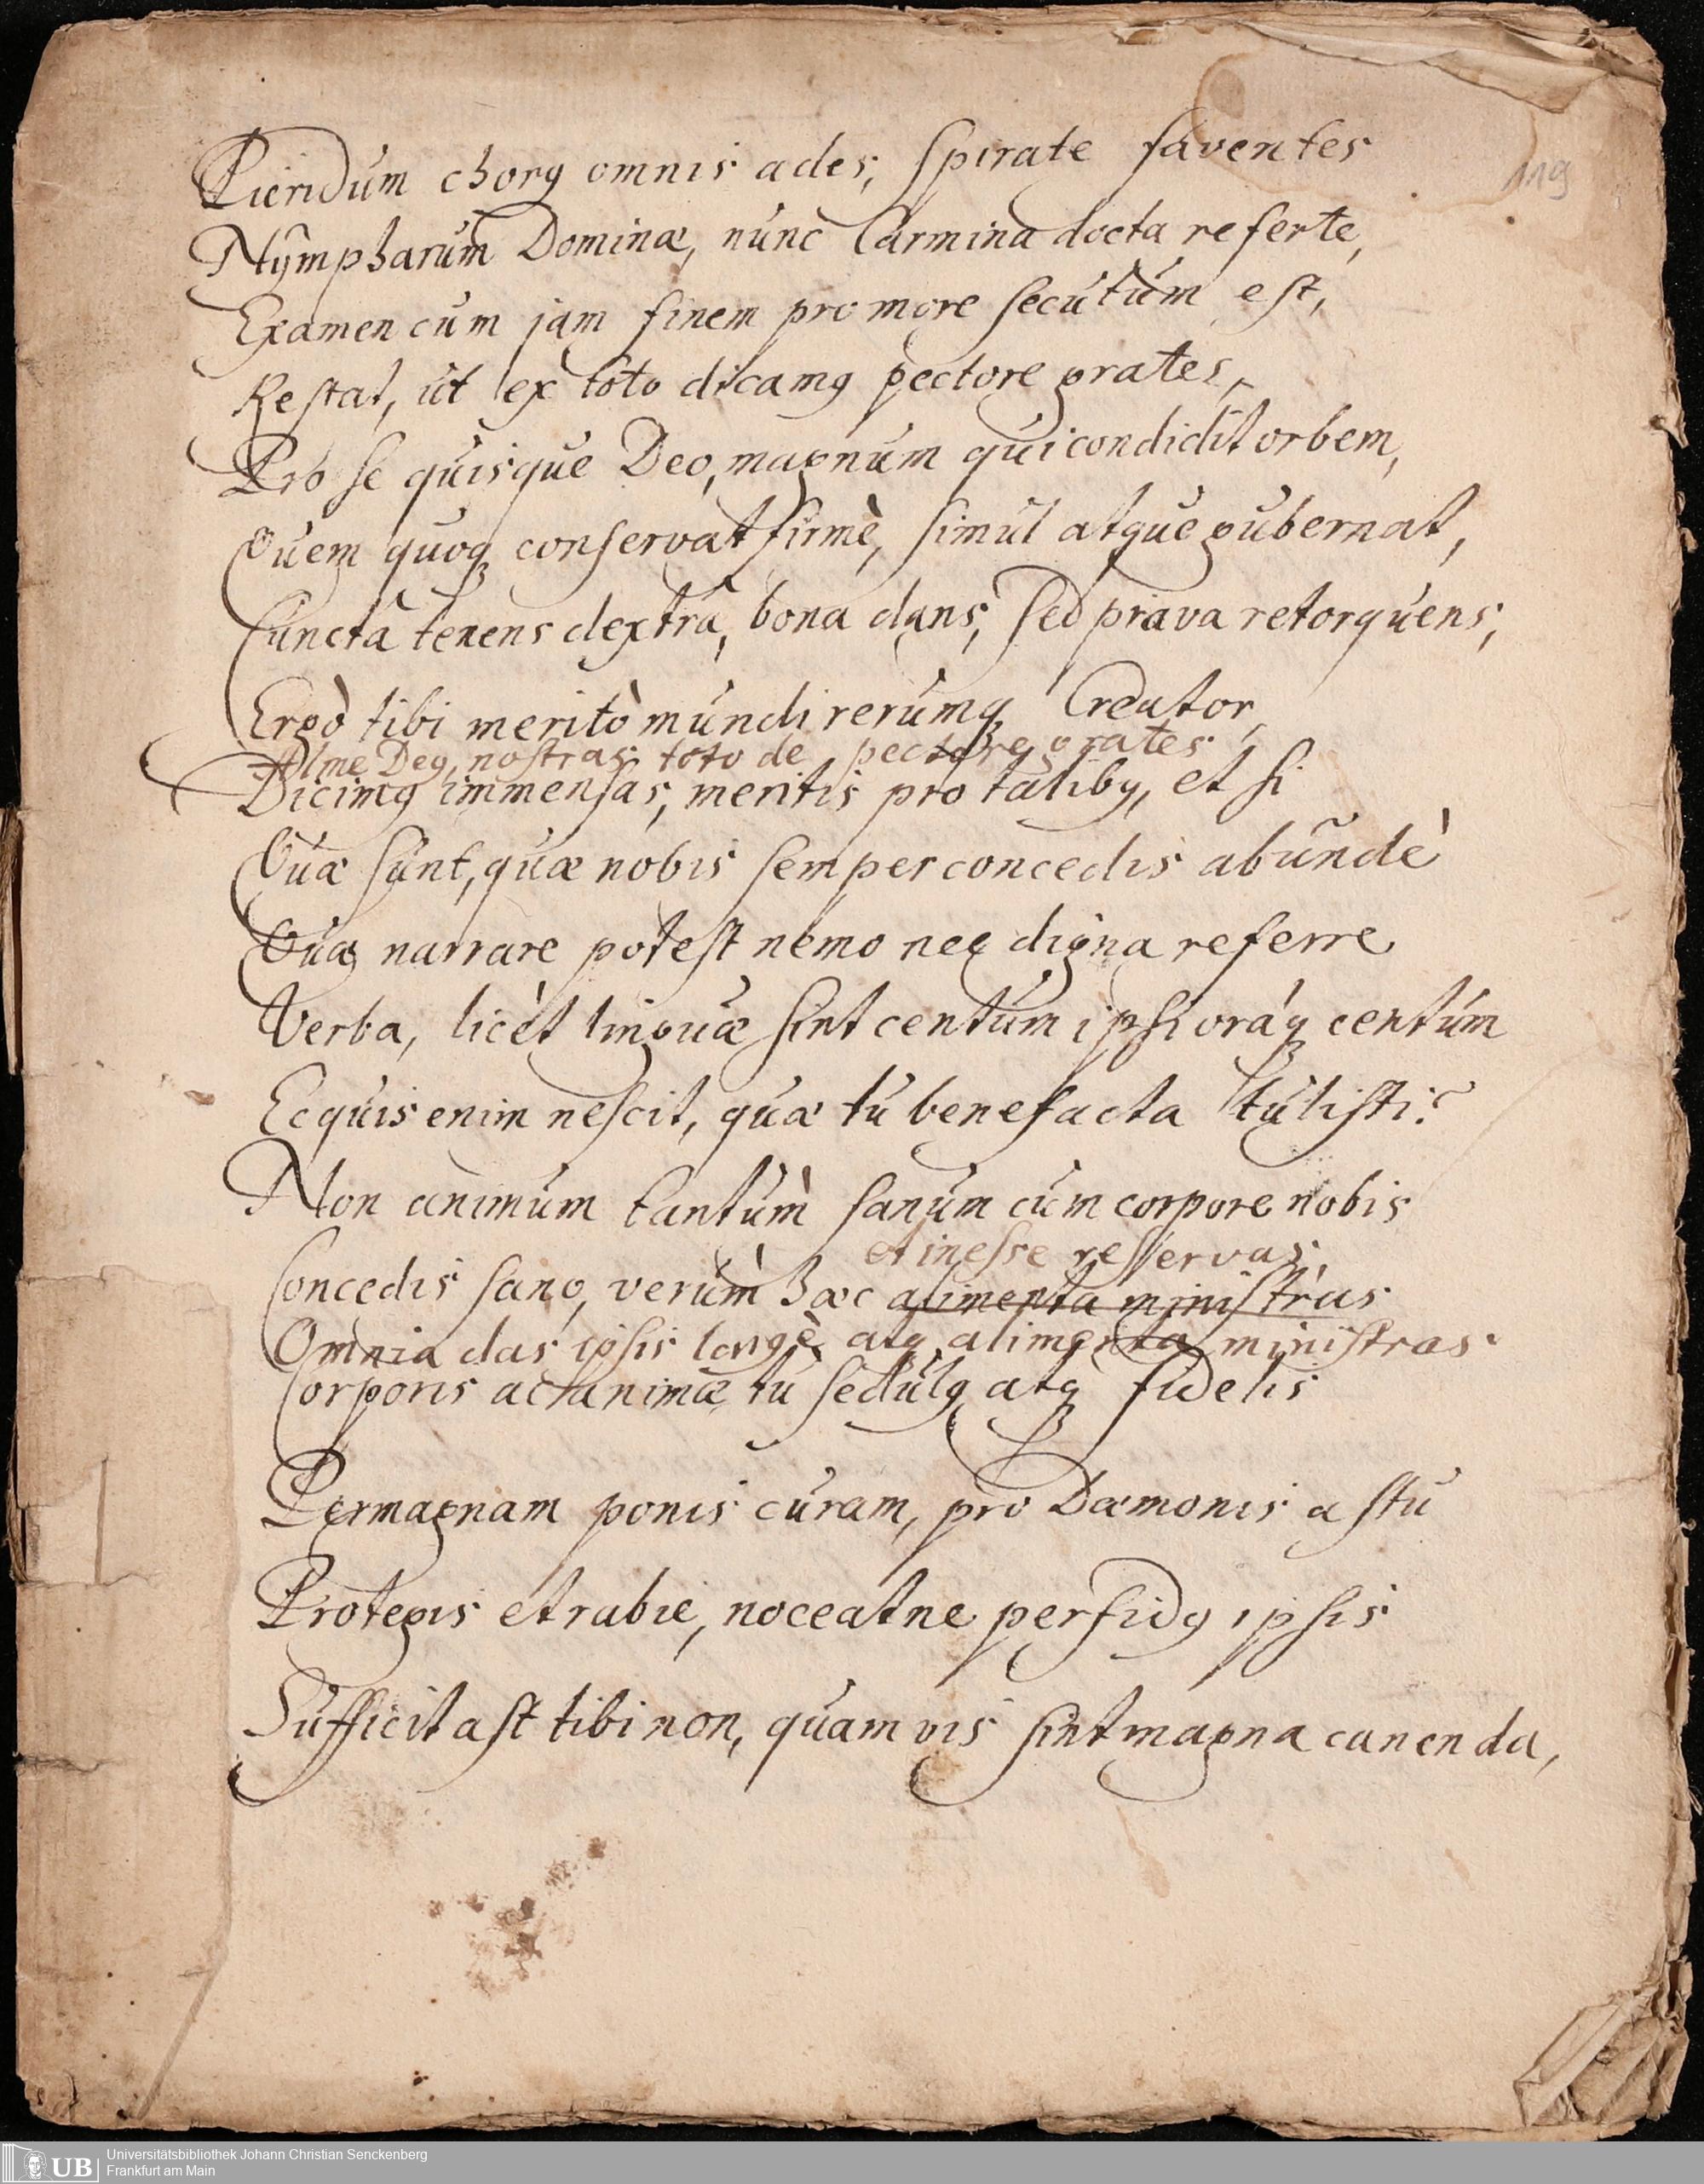 119
Pieridum chorꝰ omnis ades, spirate faventes
Nÿmpharum Dominæ, nunc Carmina docta referte,
Examen cum jam finem pro more secutum est,
Restat, ut ex toto dicamꝰ pectore grates,
Pro se quisque Deo, magnum qui condidit orbem,
Quem quoqꝫ conservat firmè, simul atque gubernat,
Cuncta tenens dextrâ, bona dans, sed prava retorquens,
Ergò tibi meritò mundi rerumqꝫ Creator,
Alme Deꝰ, nostras toto de pectore grates
Dicimꝰ immensas, meritis pro talibꝰ, et si
Quæ sunt, quæ nobis semper concedis abundè
Quæ narrare potest nemo nec digna referre
Verba, licèt linguæ sint centum ipsi oráqꝫ centúm
Ecquis enim nescit, quæ tu benefacta tulisti?
Non animum tantùm sanum cum corpore nobis
et inesse reservas,
Concedis sano, verùm hæc alimenta ministras
Omnia das ipsis longè atqꝫ alimenta ministras
Corporis ac animæ tu sedulꝰ atqꝫ fidelis
Permagnam ponis curam, pro Dæmonis astu
Protegis et rabie, noceat ne perfidꝰ ipsis
Sufficit ast tibi non, quam vis sint magna canenda,
UB
Universitätsbibliothek Johann Christian Senckenberg
Frankfurt am Main